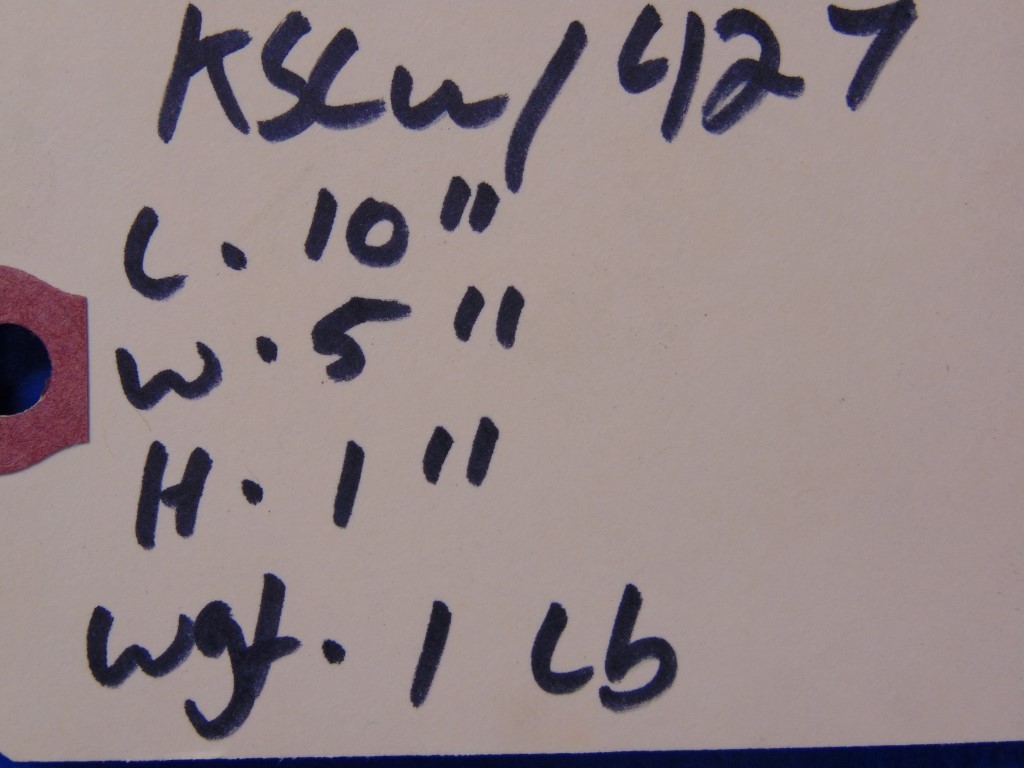 KSCW/427
L. 10"
W. 5"
H. 1"
Wgt. 1 Lb